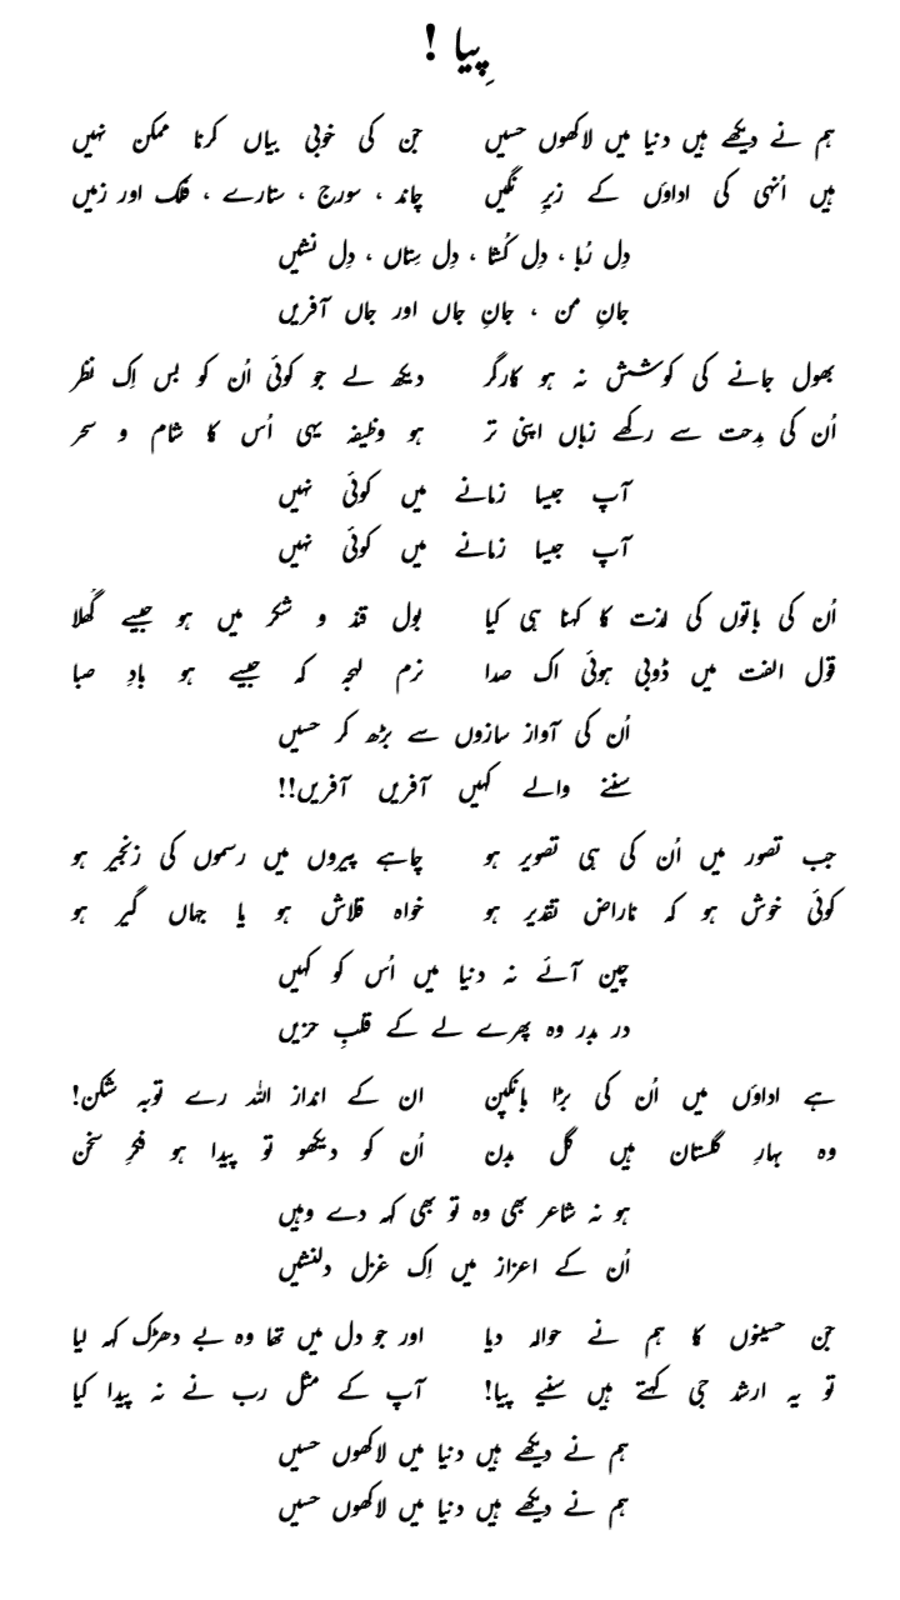 پِیا !
ہم نے دیکھے ہیں دنیا میں لاکھوں حسیں جن کی خوبی بیاں کرنا ممکن نہیں
ہیں اُنہی کی اداؤں کے زیرِ نگیں چاند ، سورج ، ستارے ، فلک اور زمیں
دِل رُبا ، دِل کُشا ، دِل سِتاں ، دِل نشیں
جانِ من ، جانِ جاں اور جاں آفریں
بھول جانے کی کوشش نہ ہو کارگر دیکھ لے جو کوئی اُن کو بس اِک نظر
اُن کی مِدحت سے رکھے زباں اپنی تر ہو وظیفہ یہی اُس کا شام و سحر
آپ جیسا زمانے میں کوئی نہیں
آپ جیسا زمانے میں کوئی نہیں
اُن کی باتوں کی لذت کا کہنا ہی کیا بول قند و شکر میں ہو جیسے گُھلا
قول الفت میں ڈوبی ہوئی اک صدا نرم لہجہ کہ جیسے ہو بادِ صبا
اُن کی آواز سازوں سے بڑھ کر حسیں
سننے والے کہیں آفریں آفریں!!
جب تصور میں اُن کی ہی تصویر ہو چاہے پیروں میں رسموں کی زنجیر ہو
کوئی خوش ہو کہ ناراض تقدیر ہو خواہ قلاش ہو یا جہاں گیر ہو
چین آئے نہ دنیا میں اُس کو کہیں
در بدر وہ پھرے لے کے قلبِ حزیں
ہے اداؤں میں اُن کی بڑا بانکپن ان کے انداز اللہ رے توبہ شکن!
وہ بہارِ گلستان ہیں گل بدن اُن کو دیکھو تو پیدا ہو فکرِ سخن
ہو نہ شاعر بھی وہ تو بھی کہہ دے وہیں
اُن کے اعزاز میں اِک غزل دلنشیں
جن حسینوں کا ہم نے حوالہ دیا اور جو دل میں تھا وہ بے دھڑک کہہ لیا
تو یہ ارشد جی کہتے ہیں سنیے پیا! آپ کے مثل رب نے نہ پیدا کیا
ہم نے دیکھے ہیں دنیا میں لاکھوں حسیں
ہم نے دیکھے ہیں دنیا میں لاکھوں حسیں